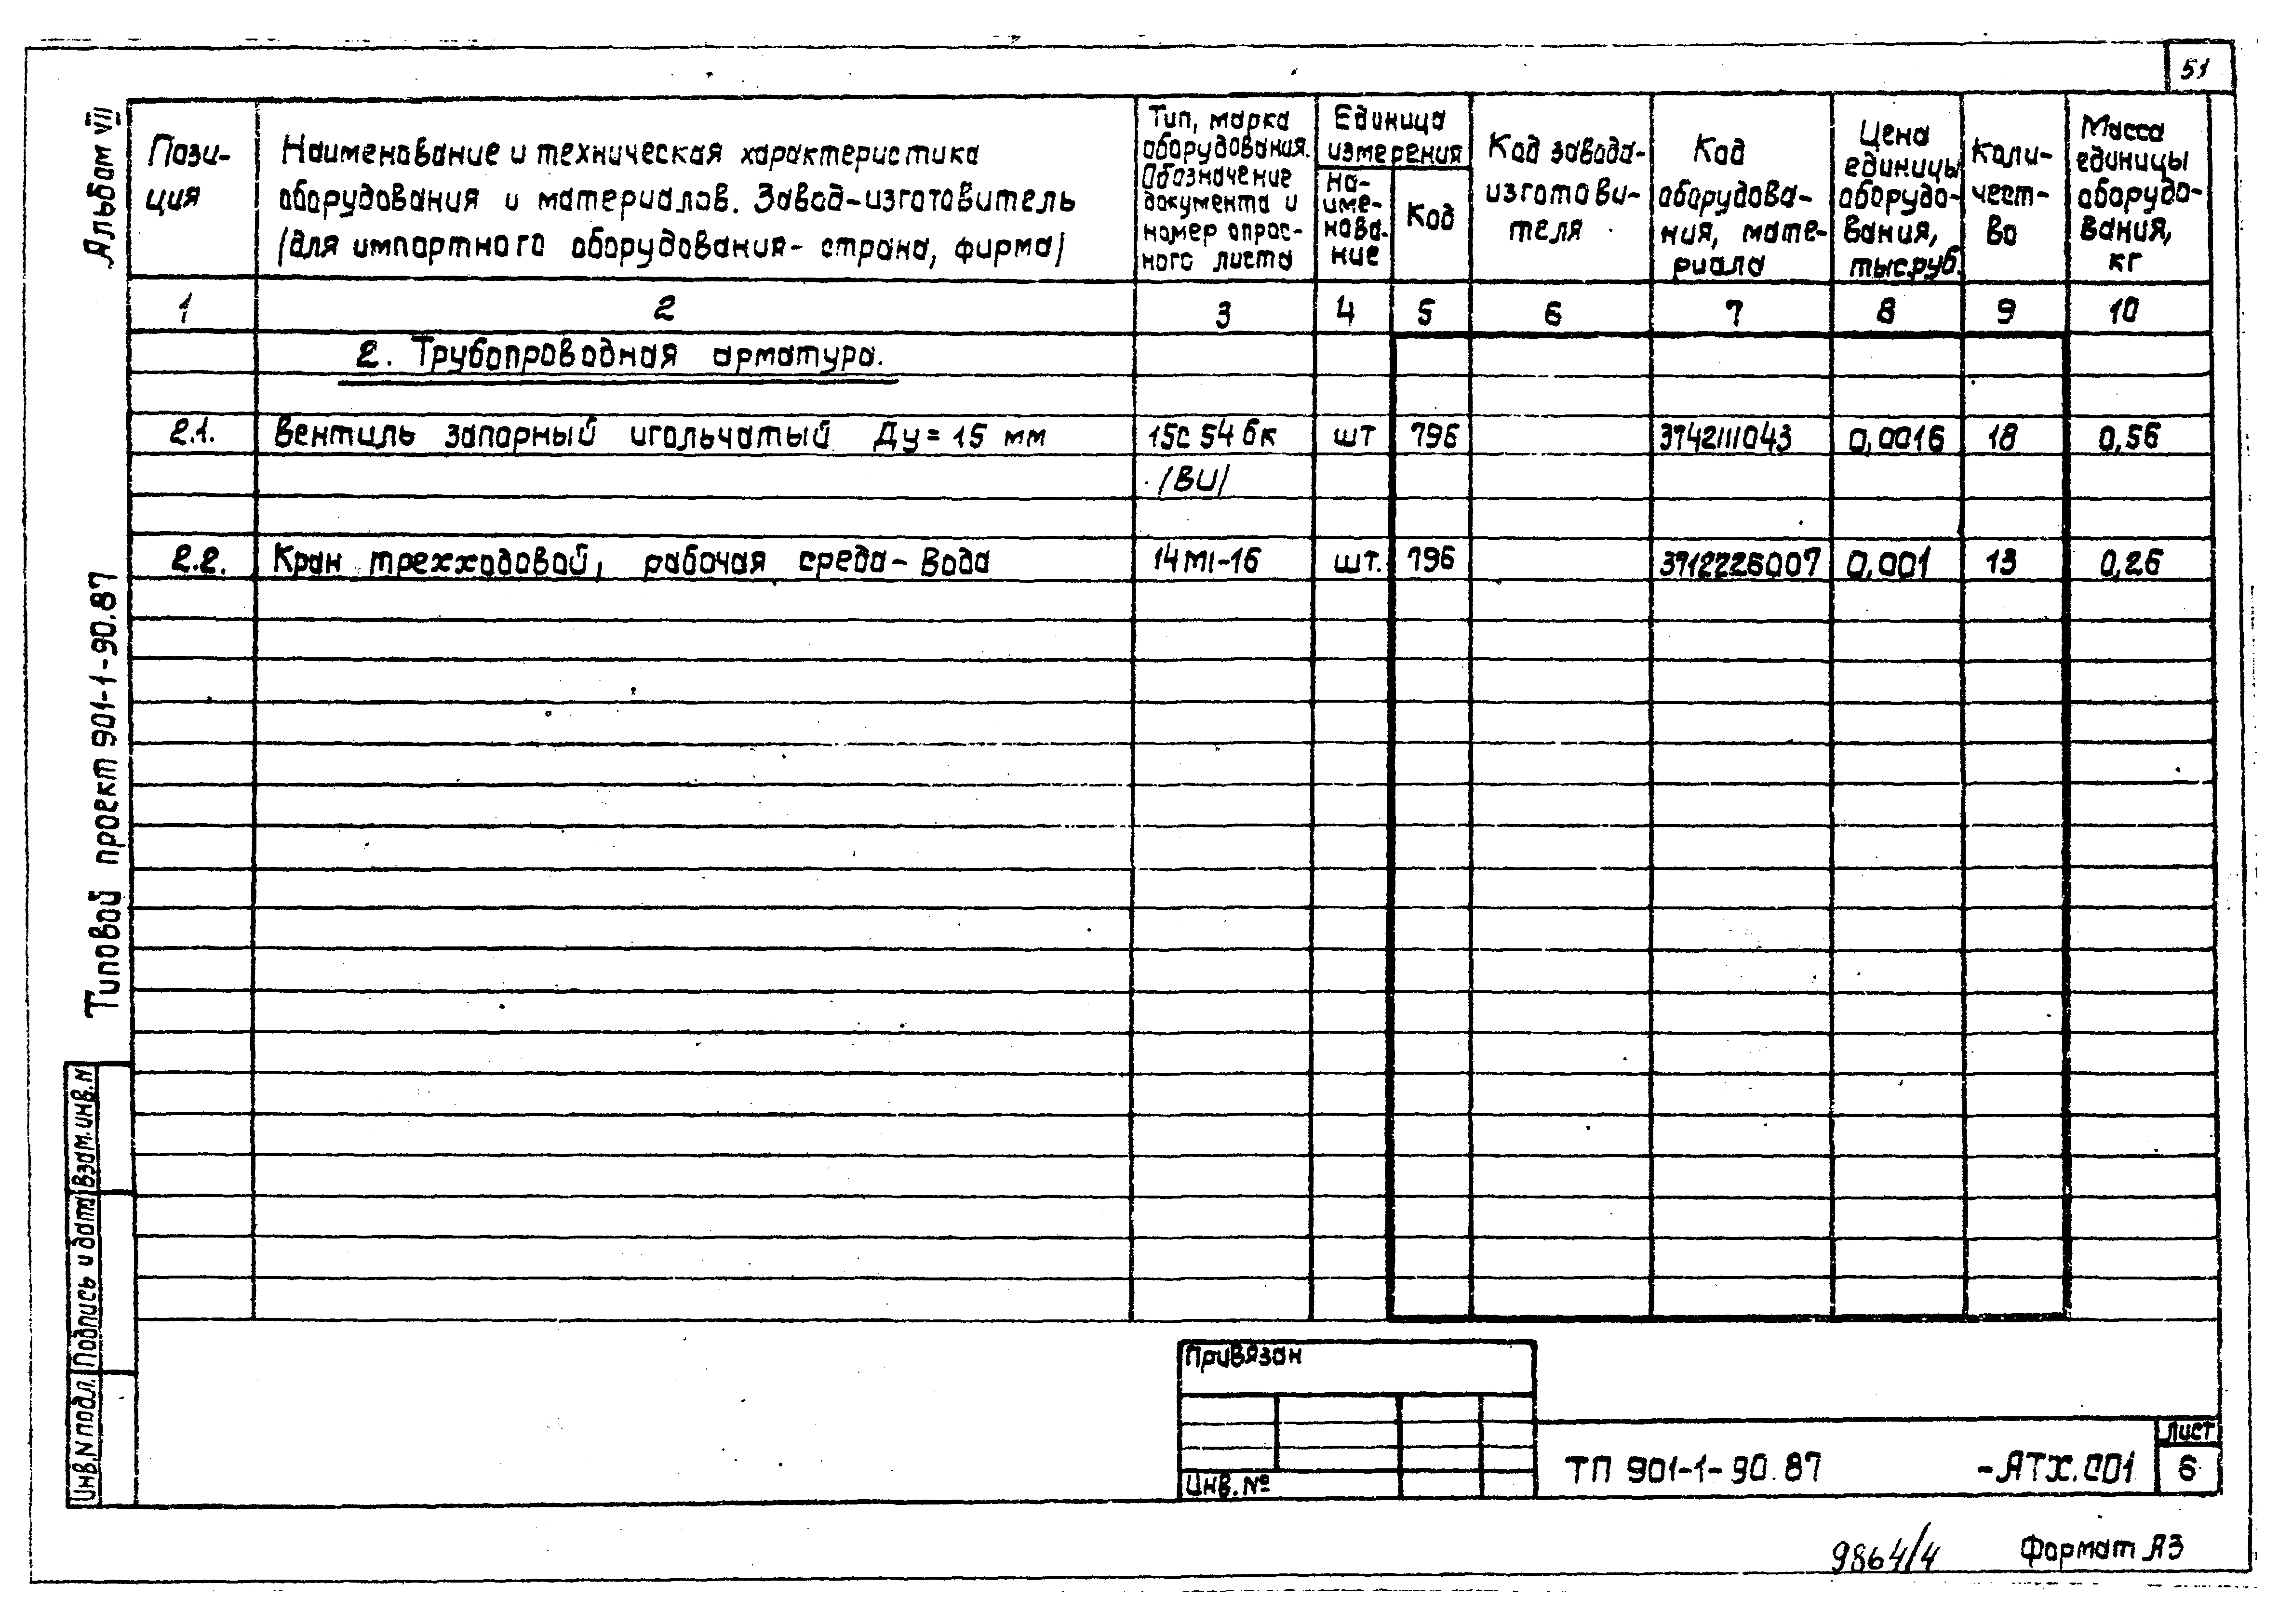 51
Альбом VII
Типовой проект 901-1-90.87
Пози-
ция
Наименование и техническая характеристика
оборудования и материалов. Завод-изготовитель
/для импортного оборудования- страна, фирма/
Тип, марка
оборудования.
Обозначение
документа и
номер опрос-
ного листа
Единица
измерения
На-
име-
нова-
ние
Код
Код завода-
изготови-
теля
Код
оборудова-
ния, мате-
риала
Цена
единицы
оборудо-
вания,
тыс.руб.
Коли-
чест-
во
Масса
единицы
оборудо-
вания,
кг
1 2 3 4 5 6 7 8 9 10
2. Трубопроводная арматура.
2.1. Вентиль запорный игольчатый Ду = 15 мм 15с 54 бк шт 796 3742111043 0,0016 18 0,56
/ВИ/
2.2. Кран трехходовой, рабочая среда- вода 14М1-16 шт. 796 3712226007 0,001 13 0,26
Взам.инв.N
Подпись и дата
Инв.N подл.
Привязан
Инв. №
ТП 901-1-90.87 -АТХ.С01
Лист
6
9864/4
Формат А3